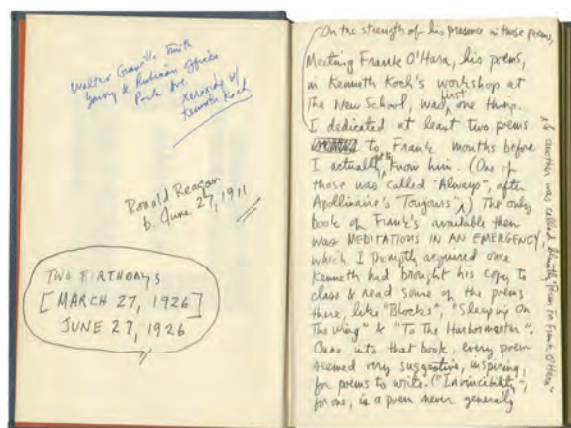 Walter Granville Smith
Young & Rubicam offices
Park Ave.
xeroxing w/
Kenneth Koch
Ronald Reagan
b. June 27, 1911
TWO BIRTHDAYS
[MARCH 27, 1926]
JUNE 27, 1926
On the strength of his presence in those poems,
Meeting Frank O'Hara, his poems,
in Kenneth Koch's workshop at
The New School, was just one thing.
I dedicated at least two poems
to Frank months before
I actually got to know him. (One of
those was called "Always", after
Apollinaire's "Toujours".) The only
book of Frank's available then
was MEDITATIONS IN AN EMERGENCY,
which I promptly acquired once
Kenneth had brought his copy to
class & read some of the poems
there, like "Blocks", "Sleeping On
The Wing" & "To The Harbormaster".
Once into that book, every poem
seemed very suggestive, inspiring,
for poems to write. ("Invincibility",
for one, is a poem never generally
& another was called bluntly "Poem To Frank O'Hara"